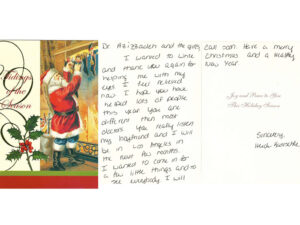 Tidings
of the
Season
Dr. Azizzadeh and the girls,
I wanted to write
and thank you again for
helping me with my
eyes. I feel relieved
now. I hope you have
helped lots of people
this year. You are
different then most
doctors. You really listen.
My boyfriend and I will
be in Los Angeles in
the next few months.
I wanted to come in for
a few little things and to
see everybody. I will
call soon. Have a merry
Christmas and a healthy
New Year.
Joy and Peace to You
This Holiday Season
Sincerely,
Heidi